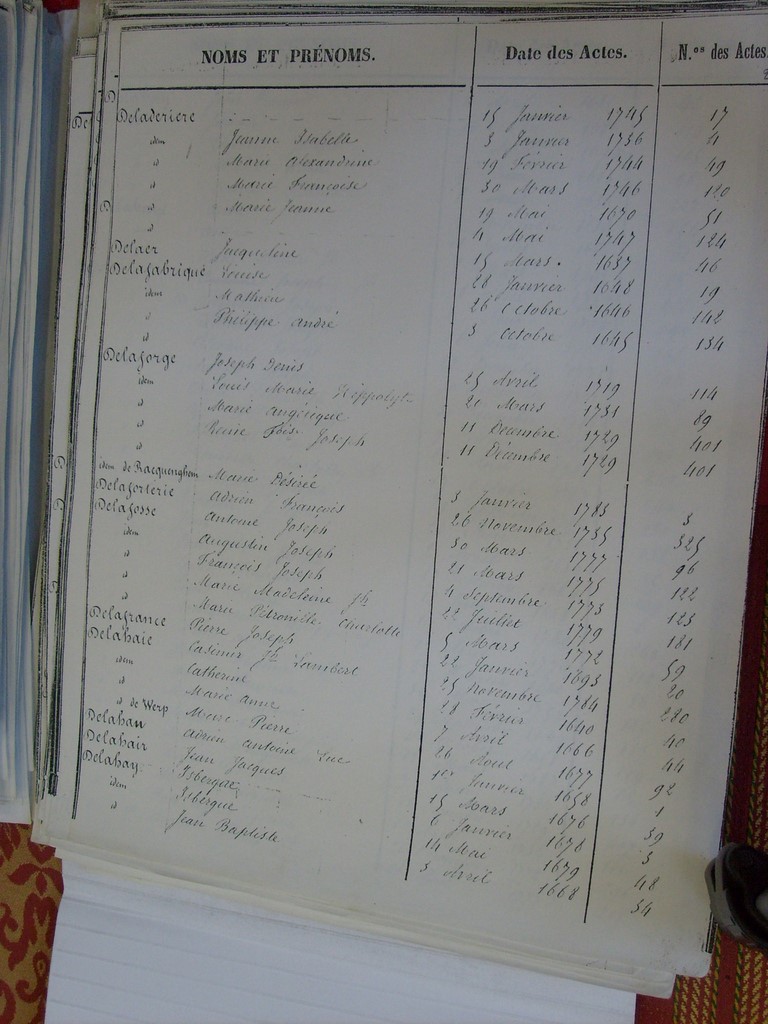 NOMS ET PRÉNOMS. Date des Actes. N.os des Actes.
Deladeriere 15 Janvier 1745 17
idem Jeanne Isabelle 3 Janvier 1736 4
d Marie Alexandrine 19 Février 1744 49
d Marie Françoise 30 Mars 1746 120
d Marie Jeanne 19 Mai 1670 51
d 4 Mai 1747 124
Delaer Jacqueline 15 Mars. 1637 46
Delafabrique Louise 28 Janvier 1648 19
idem Mathieu 26 Octobre 1646 142
d Philippe André 3 Octobre 1645 134
d
Delaforge Joseph Denis 25 Avril 1719 114
idem Louis Marie Hippolyte 21 Mars 1731 89
d Marie Angélique 11 Décembre 1729 401
d Reine Fois Joseph 11 Décembre 1729 401
idem de Racquenghem Marie Désirée 3 Janvier 1783 3
Delaforterie Adrien François 26 novembre 1735 325
Delafosse Antoine Joseph 30 Mars 1777 96
idem Augustin Joseph 21 Mars 1775 122
d François Joseph 4 Septembre 1773 123
d Marie Madeleine Jh 22 Juillet 1779 181
d Marie Pétronille Charlotte 5 Mars 1772 59
Delafrance Pierre Joseph 22 Janvier 1693 20
Delahaie Casimir Jh Lambert 25 novembre 1784 220
idem Catherine 28 Février 1640 40
d Marie anne 7 Avril 1666 44
d de Werp Marc Pierre 26 Aout 1677 92
Delahau Adrien Antoine Luc 1er Janvier 1658 1
Delahair Jean Jacques 15 Mars 1676 39
Delahay Isbergue 6 Janvier 1678 3
idem Isbergue 14 Mai 1679 48
d Jean Baptiste 3 Avril 1668 34